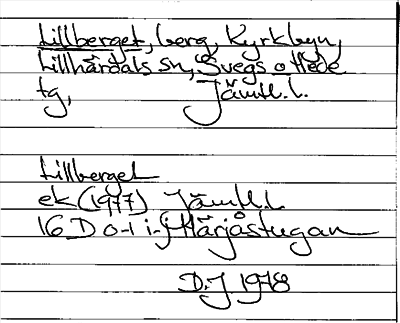 Lillberget, berg, Kyrkbyn,
Lillhärdals sn, Svegs o Hede
tg, Jämtl. l.
Lillberget
ek (1977) Jämtl. l
16 D 0-1 i-j Härjåstugan
D.J 1978